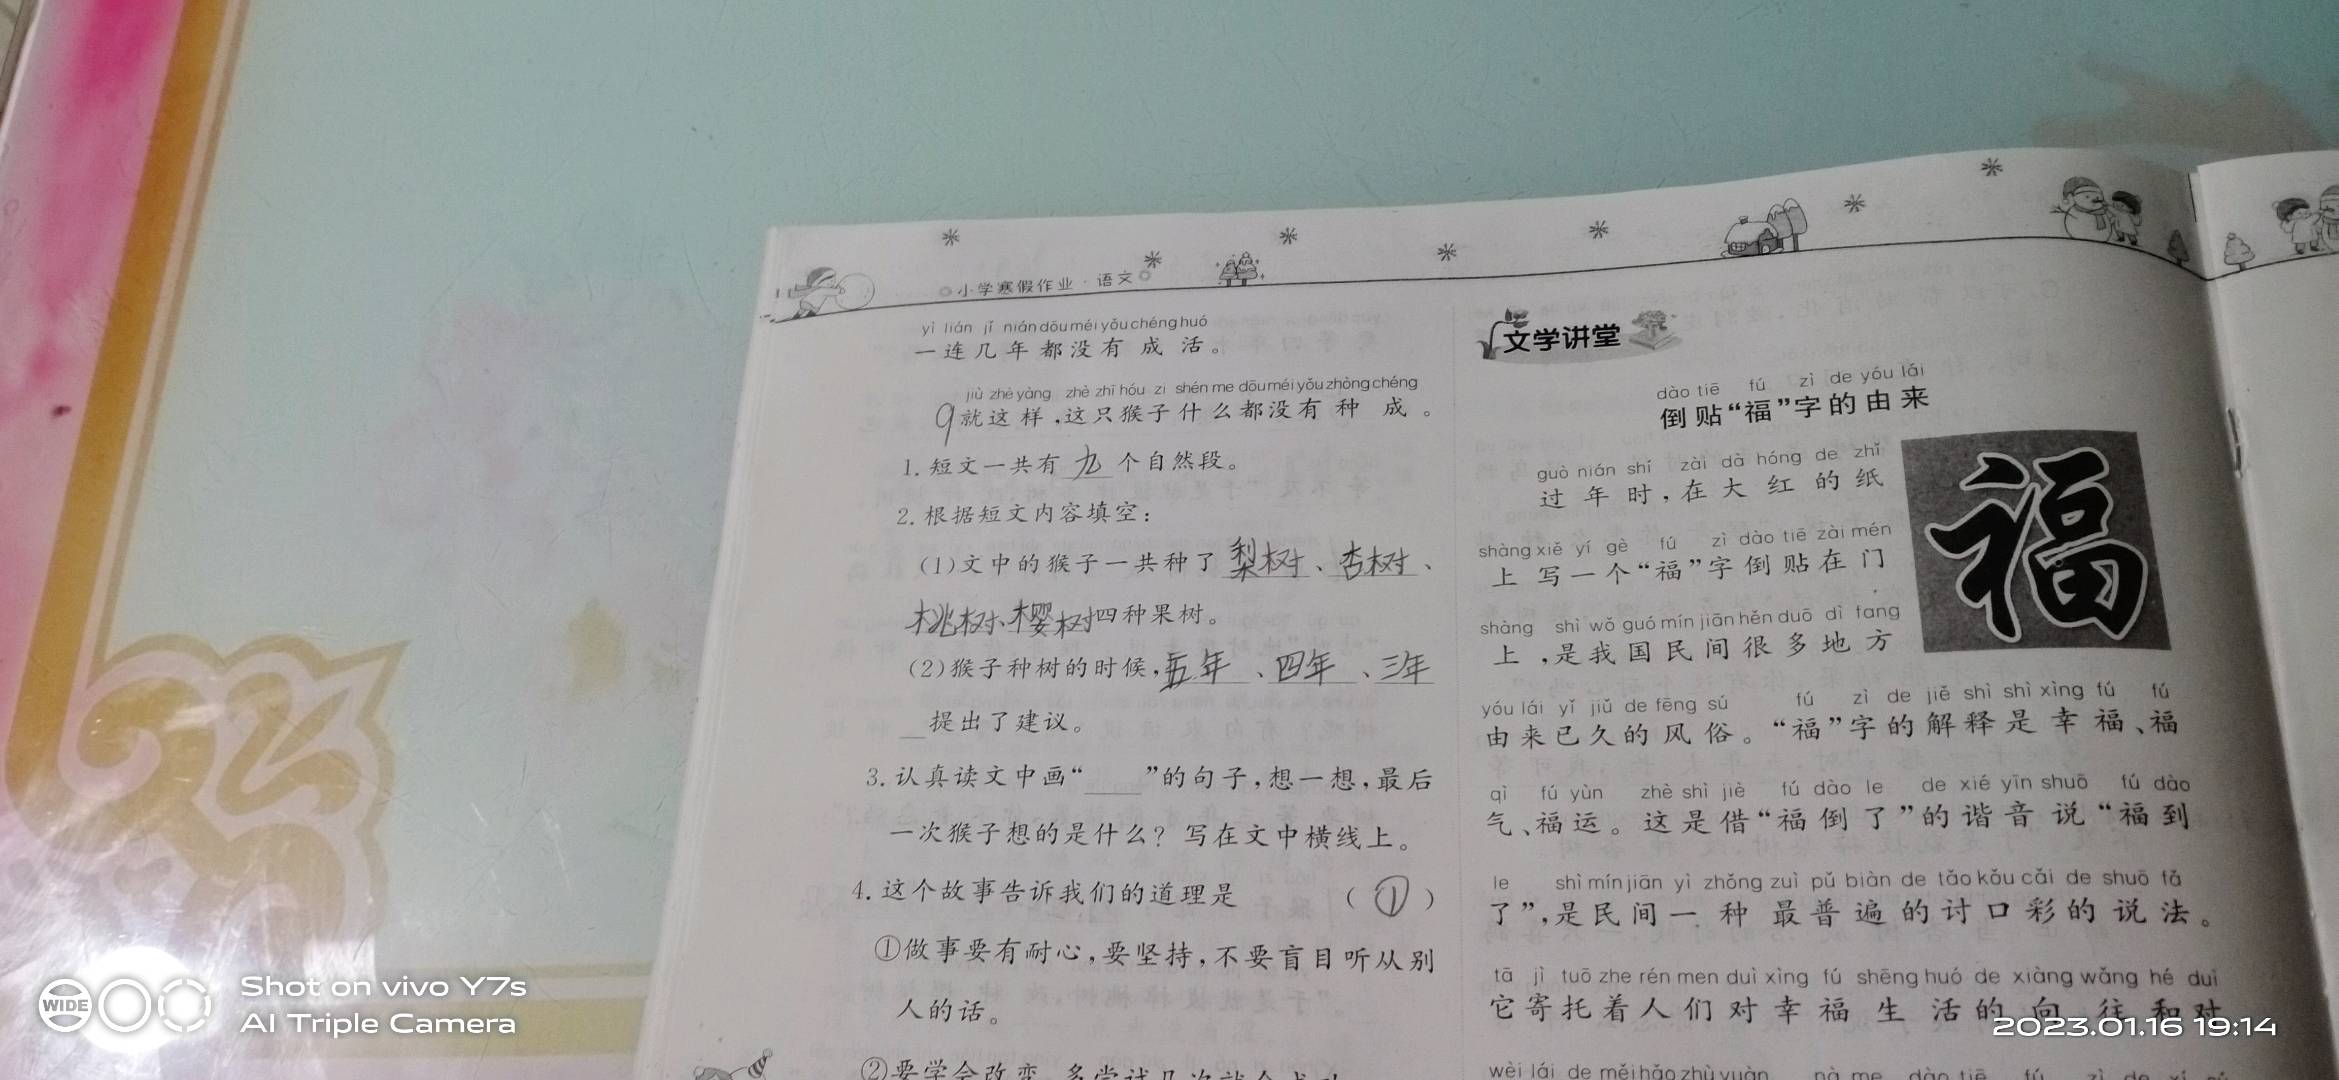 小学寒假作业·语文
yì lián jǐ nián dōu méi yǒu chéng huó
一连几年都没有成活。
jiù zhè yàng zhè zhī hóu zi shén me dōu méi yǒu zhòng chéng
9就这样,这只猴子什么都没有种成。
1.短文一共有九个自然段。
2.根据短文内容填空:
(1)文中的猴子一共种了梨树、杏树、
桃树、樱树四种果树。
(2)猴子种树的时候,五年、四年、三年
提出了建议。
3.认真读文中画“____”的句子,想一想,最后
一次猴子想的是什么?写在文中横线上。
4.这个故事告诉我们的道理是(①)
①做事要有耐心,要坚持,不要盲目听从别
人的话。
②要学会改变,多尝试几次就会成功
文学讲堂
dào tiē fú zì de yóu lái
倒贴“福”字的由来
guò nián shí zài dà hóng de zhǐ
过年时,在大红的纸
shàng xiě yí gè fú zì dào tiē zài mén
上写一个“福”字倒贴在门
shàng shì wǒ guó mín jiān hěn duō dì fang
上,是我国民间很多地方
福
yóu lái yǐ jiǔ de fēng sú fú zì de jiě shì shì xìng fú fú
由来已久的风俗。“福”字的解释是幸福、福
qì fú yùn zhè shì jiè fú dào le de xié yīn shuō fú dào
气、福运。这是借“福倒了”的谐音说“福到
le shì mín jiān yì zhǒng zuì pǔ biàn de tǎo kǒu cǎi de shuō fǎ
了”,是民间一种最普遍的讨口彩的说法。
tā jì tuō zhe rén men duì xìng fú shēng huó de xiàng wǎng hé duì
它寄托着人们对幸福生活的向往和对
wèi lái de měi hǎo zhù yuàn nà me dào tiē fú zì de
WIDE
Shot on vivo Y7s
AI Triple Camera
2023.01.16 19:14